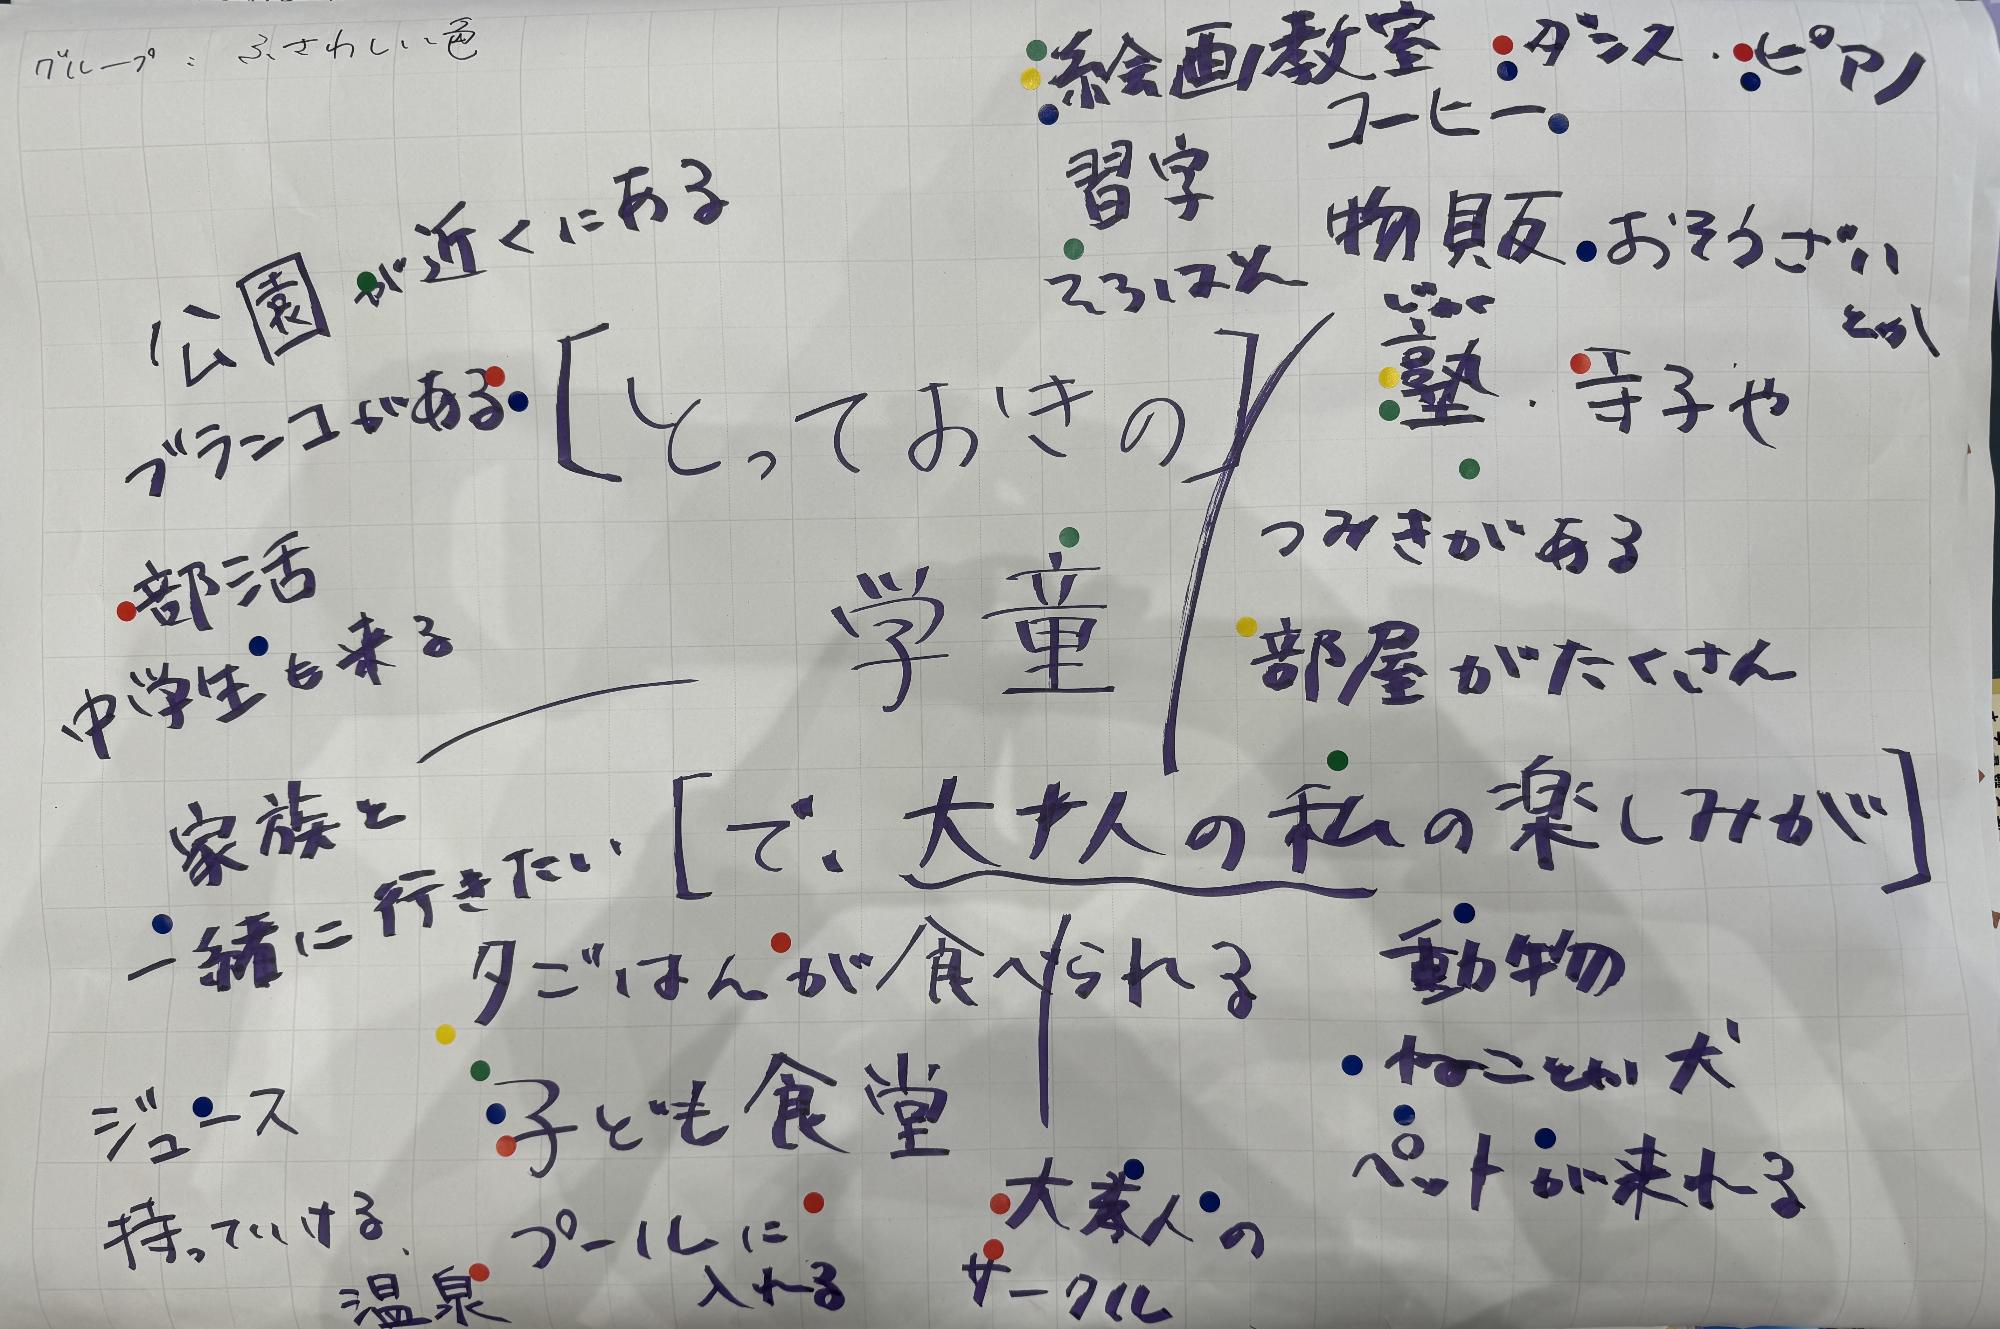 グループ: ふさわしい色
絵画教室 ダンス・ピアノ
コーヒー
習字
そろばん
物販 おそうざい
とか
公園が近くにある
ブランコがある
[とっておきの]
学童
じゅく
塾・寺子や
つみきがある
部屋がたくさん
部活
中学生も来る
家族と
一緒に行きたい
[で、大人の私の楽しみが]
夕ごはんが食べられる
子ども食堂
動物
ねことか犬
ペットが来れる
ジュース
持っていける、
温泉
プールに
入れる
大人の
サークル